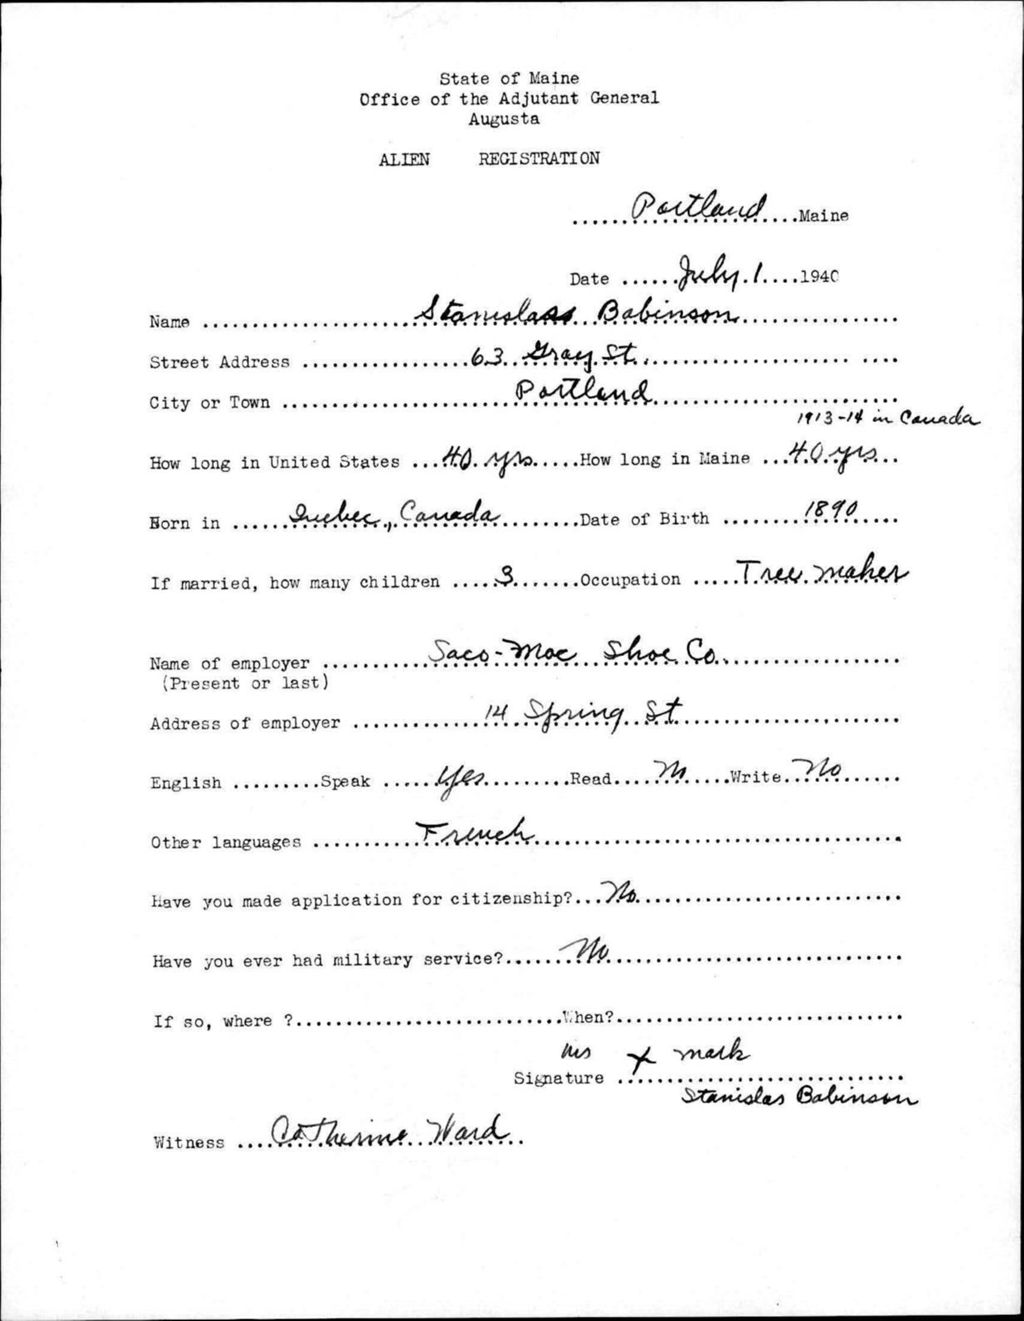 State of Maine
Office of the Adjutant General
Augusta
ALIEN REGISTRATION
......Portland....Maine
Date ......July 1....1940
Name ......................Stanislass Babinson..................
Street Address ..................63 Gray St...........................
City or Town .........................Portland...........................
1913-14 in Canada
How long in United States ...40 yrs.....How long in Maine ...40 yrs...
Born in ......Quebec, Canada.........Date of Birth .........1890.....
If married, how many children .....3.......Occupation .....Tree maker
Name of employer ............Saco-Moc Shoe Co.....................
(Present or last)
Address of employer ..............14 Spring St.........................
English .........Speak .....Yes.........Read....No.....Write..No......
Other languages ............French........................................
Have you made application for citizenship?...No...........................
Have you ever had military service?.......No..............................
If so, where ?..........................When?............................
his x mark
Signature ............................
Stanislas Babinson
Witness ....Catherine Ward..